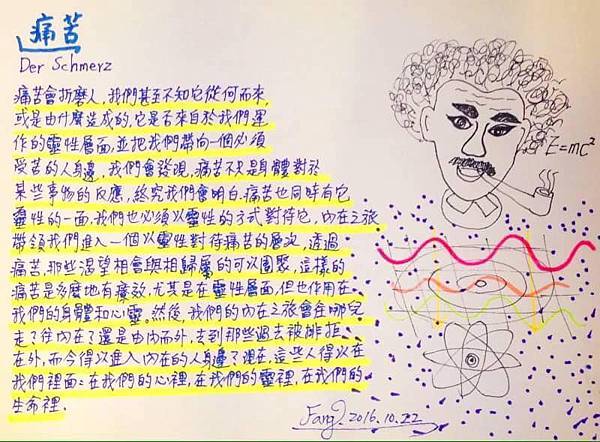 痛苦
Der Schmerz
痛苦會折磨人,我們甚至不知它從何而來,
或是由什麼造成的,它是否來自於我們運
作的靈性層面,並把我們帶向一個必須
受苦的人身邊,我們會發現,痛苦不只是身體對於
某些事物的反應,終究我們會明白,痛苦也同時有它
靈性的一面,我們也必須以靈性的方式對待它,內在之旅
帶領我們進入一個以靈性對待痛苦的層次,透過
痛苦,那些渴望相會與相歸屬的可以團聚,這樣的
痛苦是多麼地有療效,尤其是在靈性層面,但也作用在
我們的身體和心靈。然後,我們的內在之旅會在哪兒
走了往內在了還是由內而外,去到那些過去被排拒
在外,而今得以進入內在的人身邊了現在,這些人得以在
我們裡面:在我們的心裡,在我們的靈裡,在我們的
生命裡.
E=mc²
Fang. 2016.10.22